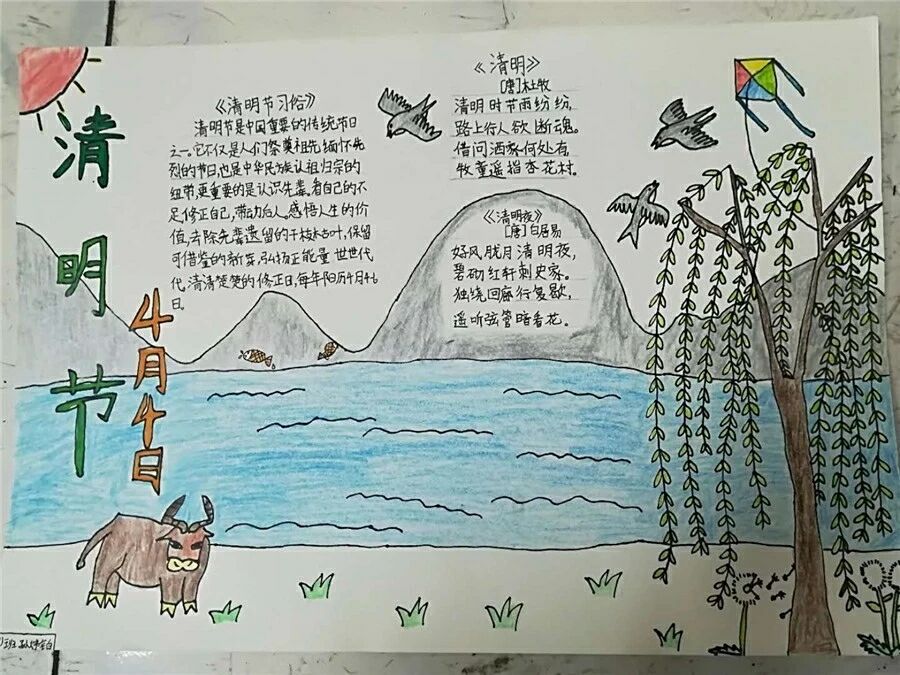 清明节
4月4日
《清明节习俗》
清明节是中国重要的传统节日
之一。它不仅是人们祭奠祖先缅怀先
烈的节日,也是中华民族认祖归宗的
纽带,更重要的是认识先辈,看自己的不
足,修正自己,带动后人,感悟人生的价
值,去除先辈遗留的干枝枯叶,保留
可借鉴的新芽,弘扬正能量世世代
代清清楚楚的修正日,每年阳历4月4-6
日。
《清明》
[唐]杜牧
清明时节雨纷纷,
路上行人欲断魂。
借问酒家何处有,
牧童遥指杏花村。
《清明夜》
[唐]白居易
好风胧月清明夜,
碧砌红轩刺史家。
独绕回廊行复歇,
遥听弦管暗看花。